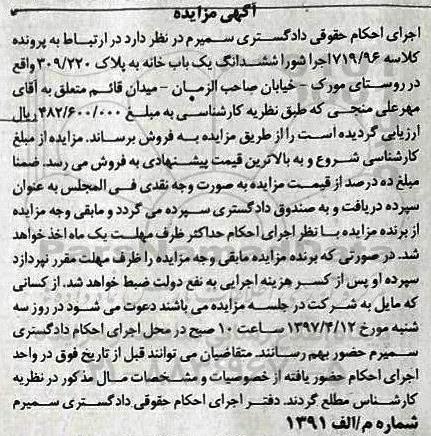 آگهی مزایده
اجرای احکام حقوقی دادگستری سمیرم در نظر دارد در ارتباط به پرونده
کلاسه ۷۱۹/۹۶ اجرا شورا ششدانگ یک باب خانه به پلاک ۳۰۹/۲۲۰ واقع
در روستای مورک - خیابان صاحب الزمان - میدان قائم متعلق به آقای
مهرعلی منجی که طبق نظریه کارشناسی به مبلغ ۴۸۲/۶۰۰/۰۰۰ ریال
ارزیابی گردیده است را از طریق مزایده به فروش برساند. مزایده از مبلغ
کارشناسی شروع و به بالاترین قیمت پیشنهادی به فروش می رسد. ضمنا
مبلغ ده درصد از قیمت مزایده به صورت وجه نقدی فی المجلس به عنوان
سپرده دریافت و به صندوق دادگستری سپرده می گردد و مابقی وجه مزایده
از برنده مزایده با نظر اجرای احکام حداکثر ظرف مهلت یک ماه اخذ خواهد
شد. در صورتی که برنده مزایده مابقی وجه مزایده را ظرف مهلت مقرر نپردازد
سپرده او پس از کسر هزینه اجرایی به نفع دولت ضبط خواهد شد. از کسانی
که مایل به شرکت در جلسه مزایده می باشند دعوت می شود در روز سه
شنبه مورخ ۱۳۹۷/۴/۱۲ ساعت ۱۰ صبح در محل اجرای احکام دادگستری
سمیرم حضور بهم رسانند. متقاضیان می توانند قبل از تاریخ فوق در واحد
اجرای احکام حضور یافته از خصوصیات و مشخصات مال مذکور در نظریه
کارشناس مطلع گردند. دفتر اجرای احکام حقوقی دادگستری سمیرم
شماره م/الف ۱۳۹۱